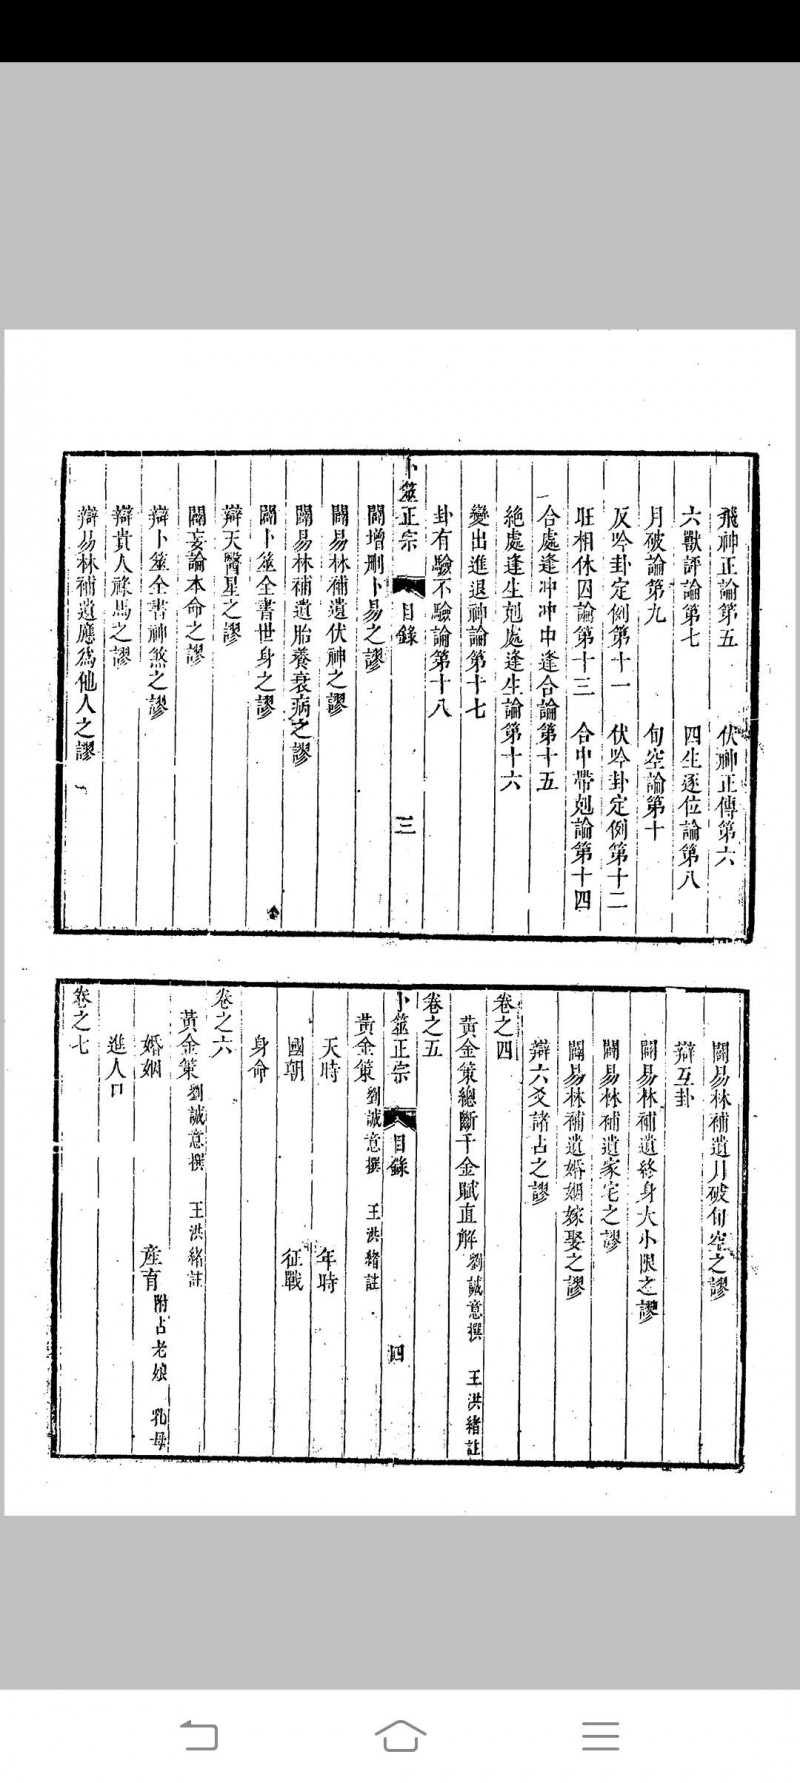 飛神正論第五　伏神正傳第六
六獸評論第七　四生逐位論第八
月破論第九　旬空論第十
反吟卦定例第十一　伏吟卦定例第十二
旺相休囚論第十三　合中帶剋論第十四
合處逢冲冲中逢合論第十五
絶處逢生剋處逢生論第十六
變出進退神論第十七
卦有驗不驗論第十八
卜筮正宗　目錄　三
闢增刪卜易之謬
闢易林補遺伏神之謬
闢易林補遺胎養衰病之謬
闢卜筮全書世身之謬
辯天醫星之謬
闢妄論本命之謬
辯卜筮全書神煞之謬
辯貴人祿馬之謬
辯易林補遺應爲他人之謬
闢易林補遺月破旬空之謬
辯互卦
闢易林補遺終身大小限之謬
闢易林補遺家宅之謬
闢易林補遺婚姻嫁娶之謬
辯六爻諸占之謬
卷之四
黃金策總斷千金賦直解 劉誠意撰　王洪緒註
卷之五
卜筮正宗　目錄　四
黃金策 劉誠意撰　王洪緒註
天時　年時
國朝　征戰
身命
卷之六
黃金策 劉誠意撰　王洪緒註
婚姻　產育 附占老娘　乳母
進人口
卷之七